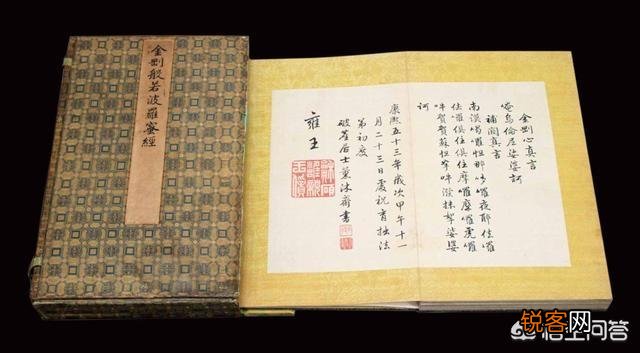 金剛般若波羅蜜經
金剛心真言
唵烏倫尼娑婆訶
補闕真言
南漠喝囉怛那哆囉夜耶佉囉
佉囉俱住俱住摩囉摩囉虎囉
吽賀賀蘇怛拏吽潑抹拏娑婆
訶
康熙五十三年歲次甲午十一
月二十三日慶祝育拙法
第初度
破塵居士薰沐齋書
雍王
锐客网
悟空问答